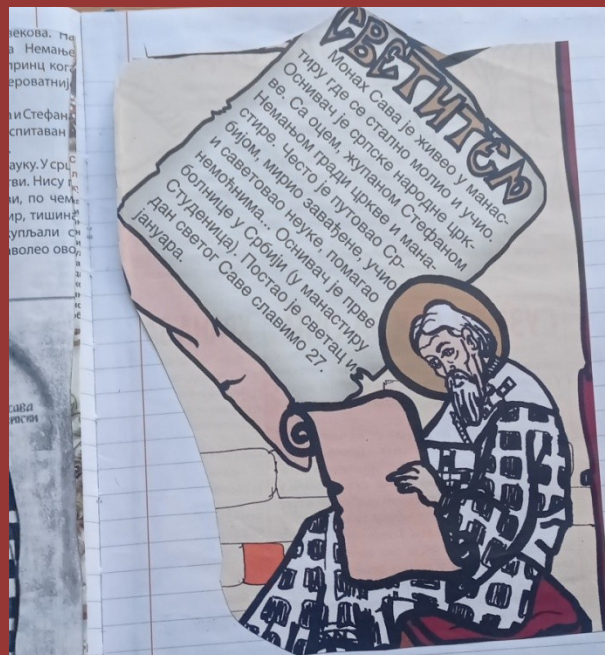 векова. На
Немање
принц кога
и Стефан
ауку. У
Нису
по чем
тишина
ово
сава
СВЕТИТЕЉ
Монах Сава је живео у манас-
тиру где се стално молио и учио.
Оснивач је српске народне црк-
ве. Са оцем, жупаном Стефаном
Немањом гради цркве и мана-
стире. Често је путовао Ср-
бијом, мирио завађене, учио
и саветовао неуке, помагао
немоћнима. . Оснивач је прве
болнице у Србији (у манастиру
Студеница). Постао је светац и
дан светог Саве славимо 27.
јануара.